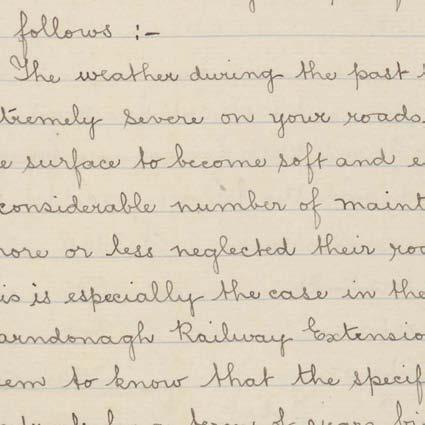 follows :-
The weather during the past
tremely severe on your roads.
e surface to become soft and e
considerable number of maint
more or less neglected their roa
is is especially the case in the
arndonagh Railway Extensio
em to know that the specif
a term of years